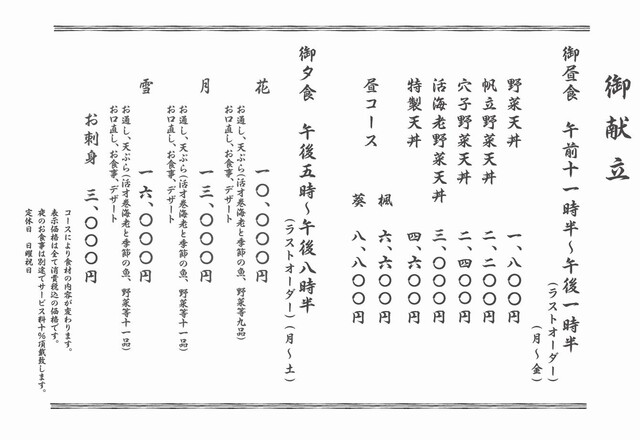 御献立
御昼食　午前十一時半〜午後一時半
(ラストオーダー)
(月〜金)
野菜天丼　一、八〇〇円
帆立野菜天丼　二、二〇〇円
穴子野菜天丼　二、四〇〇円
活海老野菜天丼　三、〇〇〇円
特製天丼　四、六〇〇円
昼コース
楓　六、六〇〇円
葵　八、八〇〇円
御夕食　午後五時〜午後八時半
(ラストオーダー)(月〜土)
花　一〇、〇〇〇円
お通し、天ぷら(活才巻海老と季節の魚、野菜等九品)
お口直し、お食事、デザート
月　一三、〇〇〇円
お通し、天ぷら(活才巻海老と季節の魚、野菜等十一品)
お口直し、お食事、デザート
雪　一六、〇〇〇円
お通し、天ぷら(活才巻海老と季節の魚、野菜等十一品)
お口直し、お食事、デザート
お刺身　三、〇〇〇円
コースにより食材の内容が変わります。
表示価格は全て消費税込の価格です。
夜のお食事は別途でサービス料十%頂戴致します。
定休日　日曜祝日